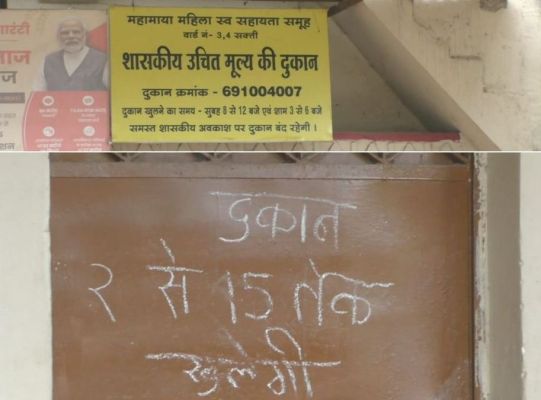 ारंटी
ाज
ज
महामाया महिला स्व सहायता समूह
वार्ड नं- 3,4 सक्ती
शासकीय उचित मूल्य की दुकान
दुकान क्रमांक - 691004007
दुकान खुलने का समय - सुबह 8 से 12 बजे एवं शाम 3 से 6 बजे
समस्त शासकीय अवकाश पर दुकान बंद रहेगी ।
दुकान
२ से 15 तक
खुलेगी